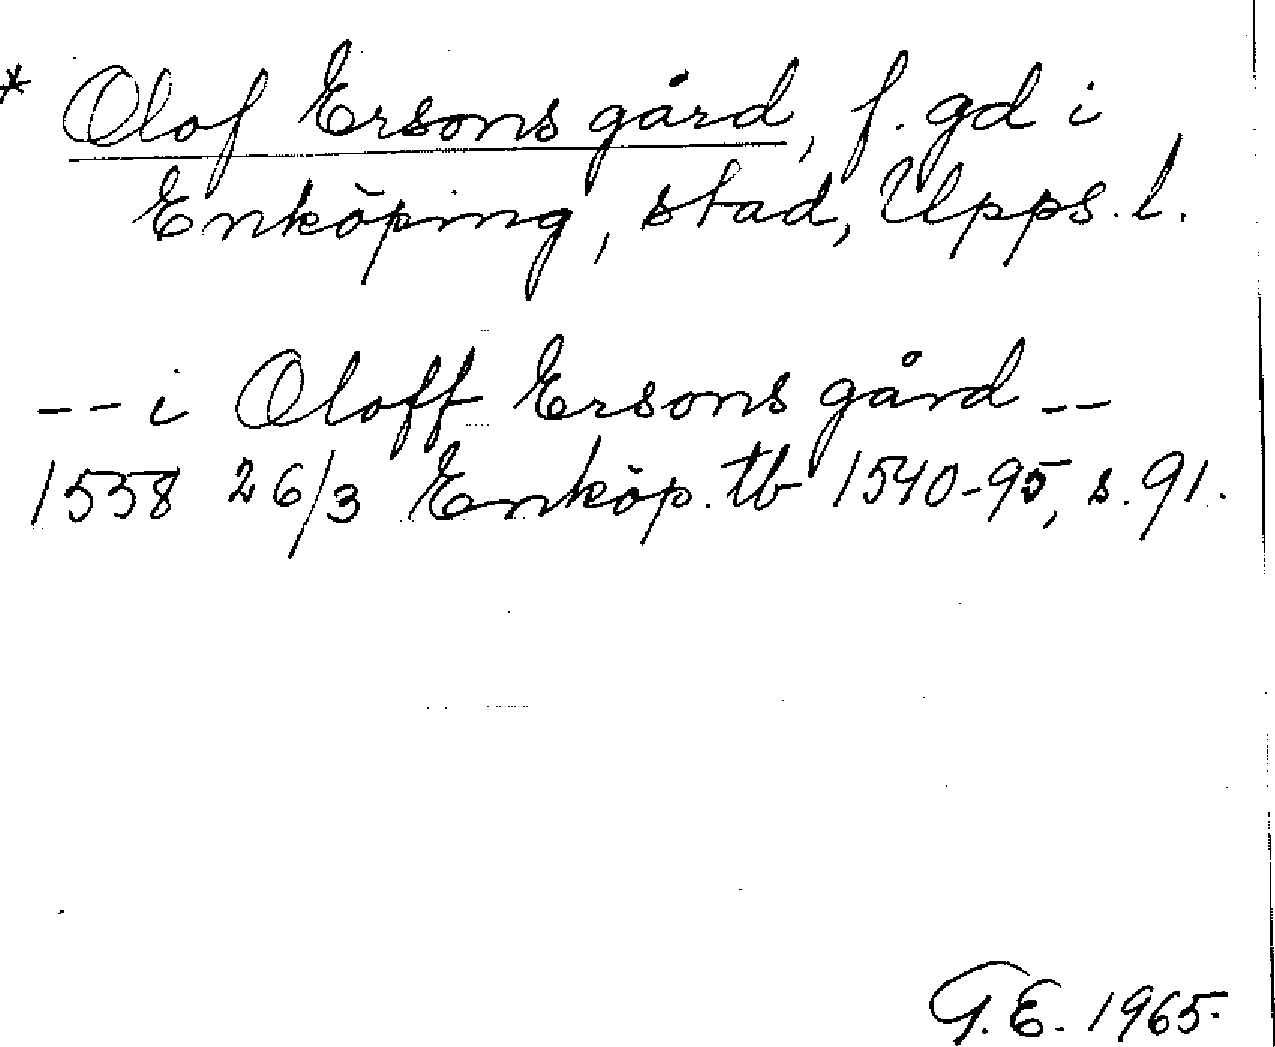 * Olof Ersons gård, f. gd i
Enköping, stad, Upps. l.
-- i Oloff Ersons gård --
1558 26/3 Enköp. tb 1540-95, s. 91.
G.E. 1965.